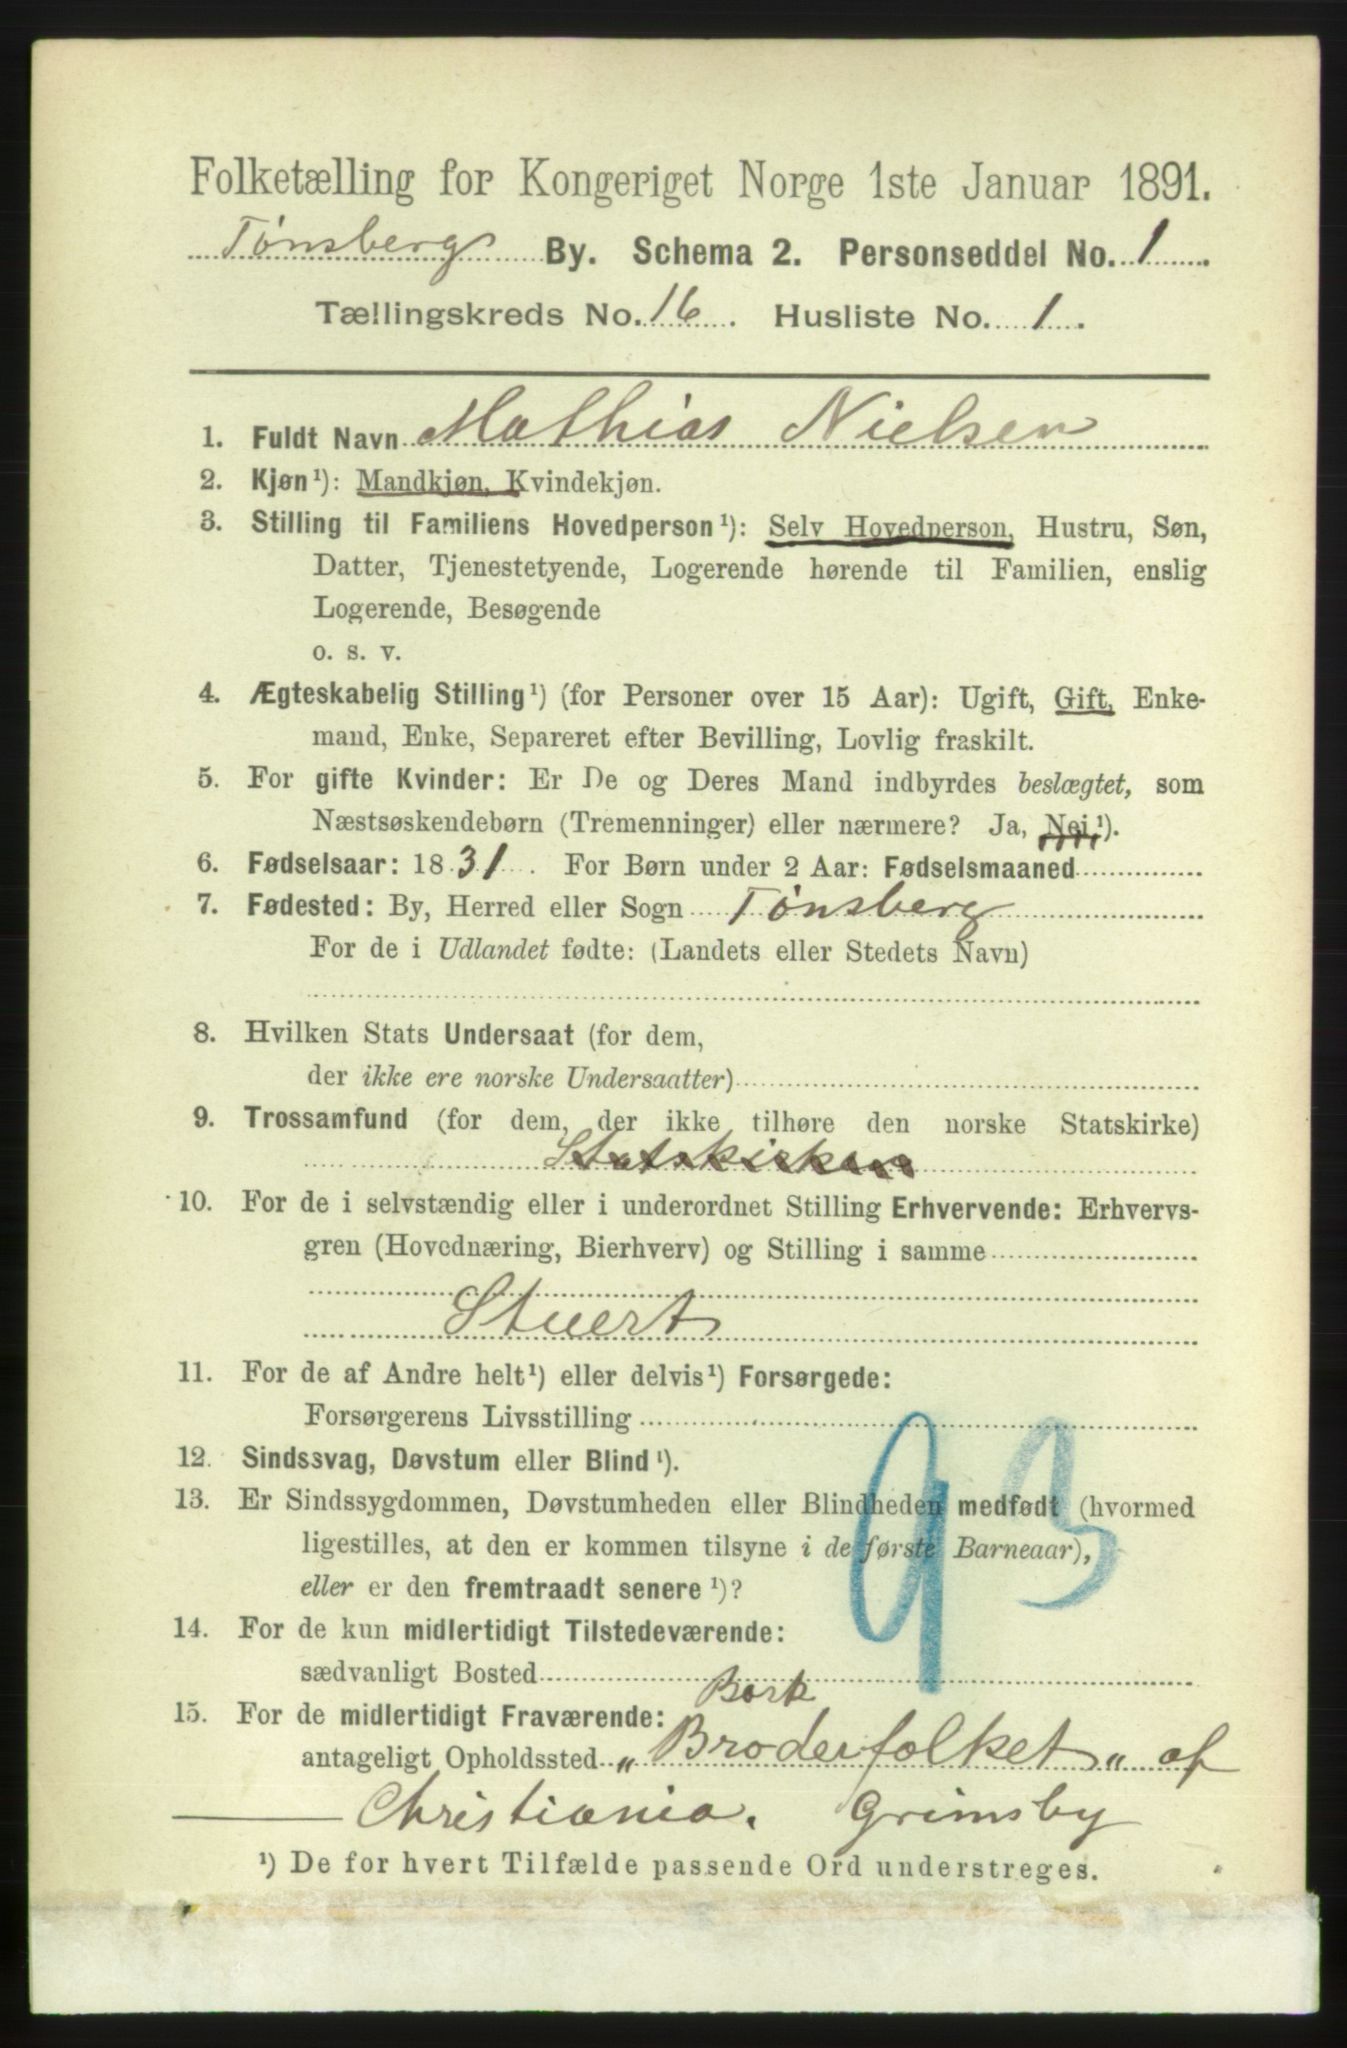 Folketælling for Kongeriget Norge 1ste Januar 1891.
Tønsberg By. Schema 2. Personseddel No. 1
Tællingskreds No. 16. Husliste No. 1.
1. Fuldt Navn Mathias Nielsen
2. Kjøn¹): Mandkjøn, Kvindekjøn.
3. Stilling til Familiens Hovedperson¹): Selv Hovedperson, Hustru, Søn,
Datter, Tjenestetyende, Logerende hørende til Familien, enslig
Logerende, Besøgende
o. s. v.
4. Ægteskabelig Stilling¹) (for Personer over 15 Aar): Ugift, Gift, Enke-
mand, Enke, Separeret efter Bevilling, Lovlig fraskilt.
5. For gifte Kvinder: Er De og Deres Mand indbyrdes beslægtet, som
Næstsøskendebørn (Tremenninger) eller nærmere? Ja, Nei¹).
6. Fødselsaar: 1831. For Børn under 2 Aar: Fødselsmaaned
7. Fødested: By, Herred eller Sogn Tønsberg
For de i Udlandet fødte: (Landets eller Stedets Navn)
8. Hvilken Stats Undersaat (for dem,
der ikke ere norske Undersaatter)
9. Trossamfund (for dem, der ikke tilhøre den norske Statskirke)
Statskirken
10. For de i selvstændig eller i underordnet Stilling Erhvervende: Erhvervs-
gren (Hovednæring, Bierhverv) og Stilling i samme
Stuert
11. For de af Andre helt¹) eller delvis¹) Forsørgede:
Forsørgerens Livsstilling
12. Sindssvag, Døvstum eller Blind¹).
13. Er Sindssygdommen, Døvstumheden eller Blindheden medfødt (hvormed
ligestilles, at den er kommen tilsyne i de første Barneaar),
eller er den fremtraadt senere¹)?
93
14. For de kun midlertidigt Tilstedeværende:
sædvanligt Bosted
Bark
15. For de midlertidigt Fraværende:
antageligt Opholdssted „Broderfolket" af
Christiania. Grimsby
¹) De for hvert Tilfælde passende Ord understreges.